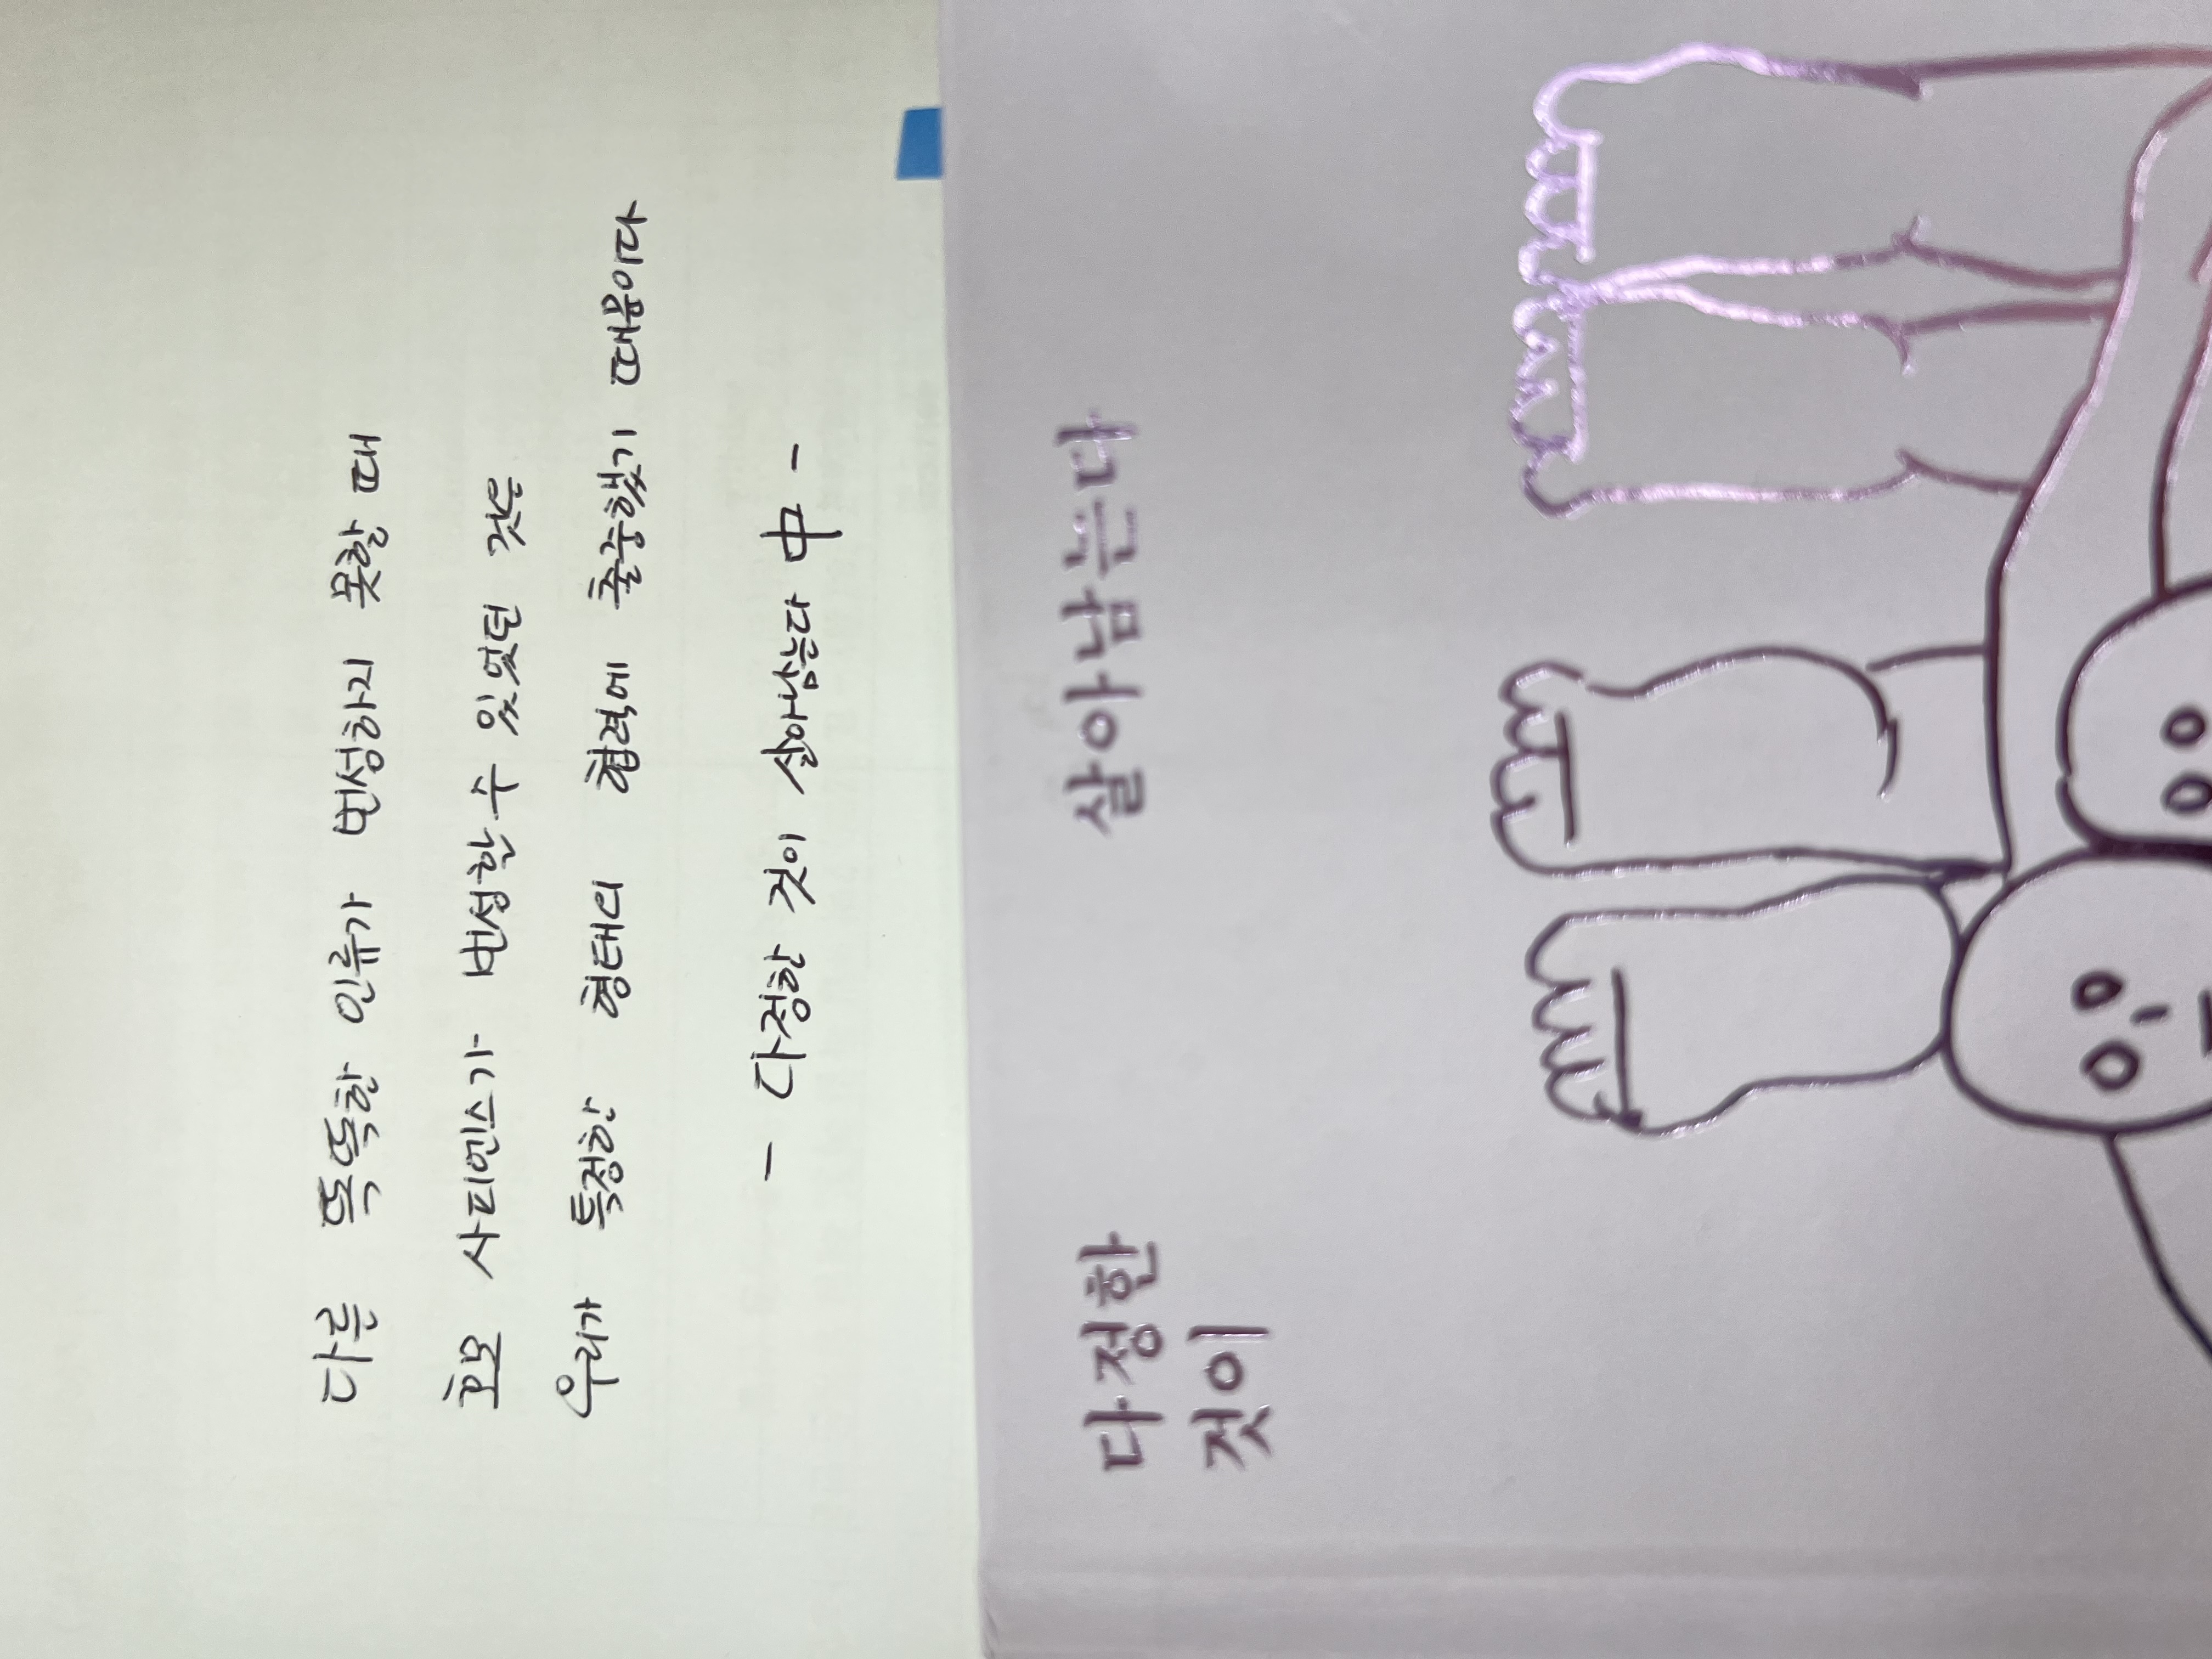 다른 똑똑한 인류가 번성하지 못할 때
호모 사피엔스가 번성할 수 있었던 것은
우리가 특정한 형태의 협력에 출중했기 때문이다
- 다정한 것이 살아남는다 中 -
다정한 살아남는다
것이